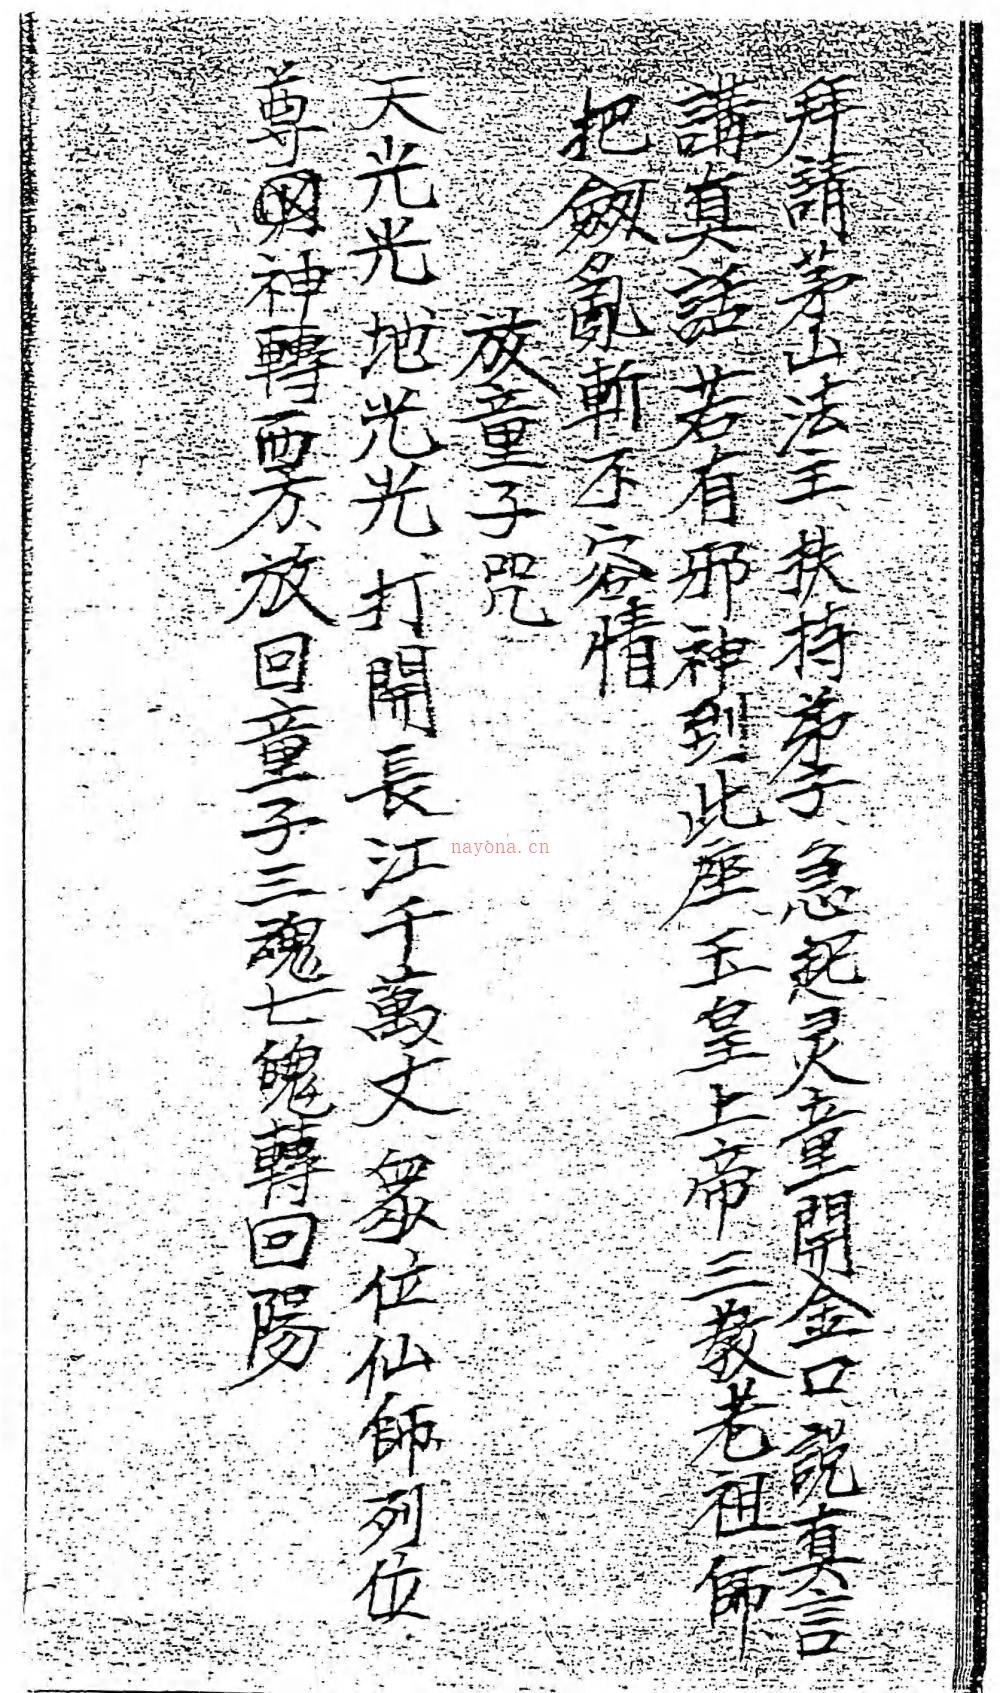 拜請茅山法主扶持弟子急起灵童開金口說真言
講真話若有邪神到此座玉皇上帝三教老祖師
把劔亂斬不容情
放童子咒
天光光地光光打開長江千萬丈眾位仙師列位
尊神轉西方放回童子三魂七魄轉回陽
nayona.cn